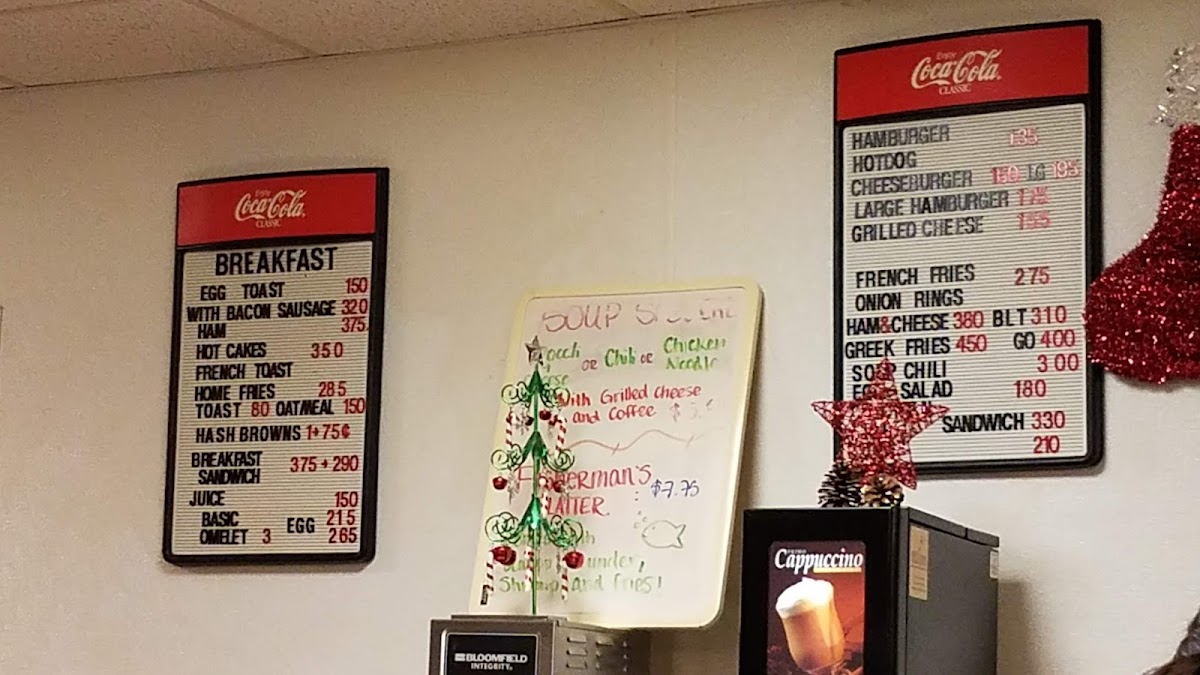 Enjoy
Coca-Cola
CLASSIC
BREAKFAST
EGG TOAST 150
WITH BACON SAUSAGE 320
HAM 375
HOT CAKES 350
FRENCH TOAST
HOME FRIES 285
TOAST 80 OATMEAL 150
HASH BROWNS 1+75¢
BREAKFAST
SANDWICH 375+290
JUICE 150
BASIC EGG 215
OMELET 3 265
SOUP
or Chili or Chicken
Noodle
With Grilled Cheese
and Coffee
Fisherman's
$7.75
Shrimp and fries!
Enjoy
Coca-Cola
CLASSIC
HAMBURGER 135
HOTDOG
CHEESEBURGER 150 LG 195
LARGE HAMBURGER 175
GRILLED CHEESE 155
FRENCH FRIES 275
ONION RINGS
HAM&CHEESE 380 BLT 310
GREEK FRIES 450 GO 400
SOUP CHILI 300
SALAD 180
SANDWICH 330
210
Cappuccino
BLOOMFIELD
INTEGRITY